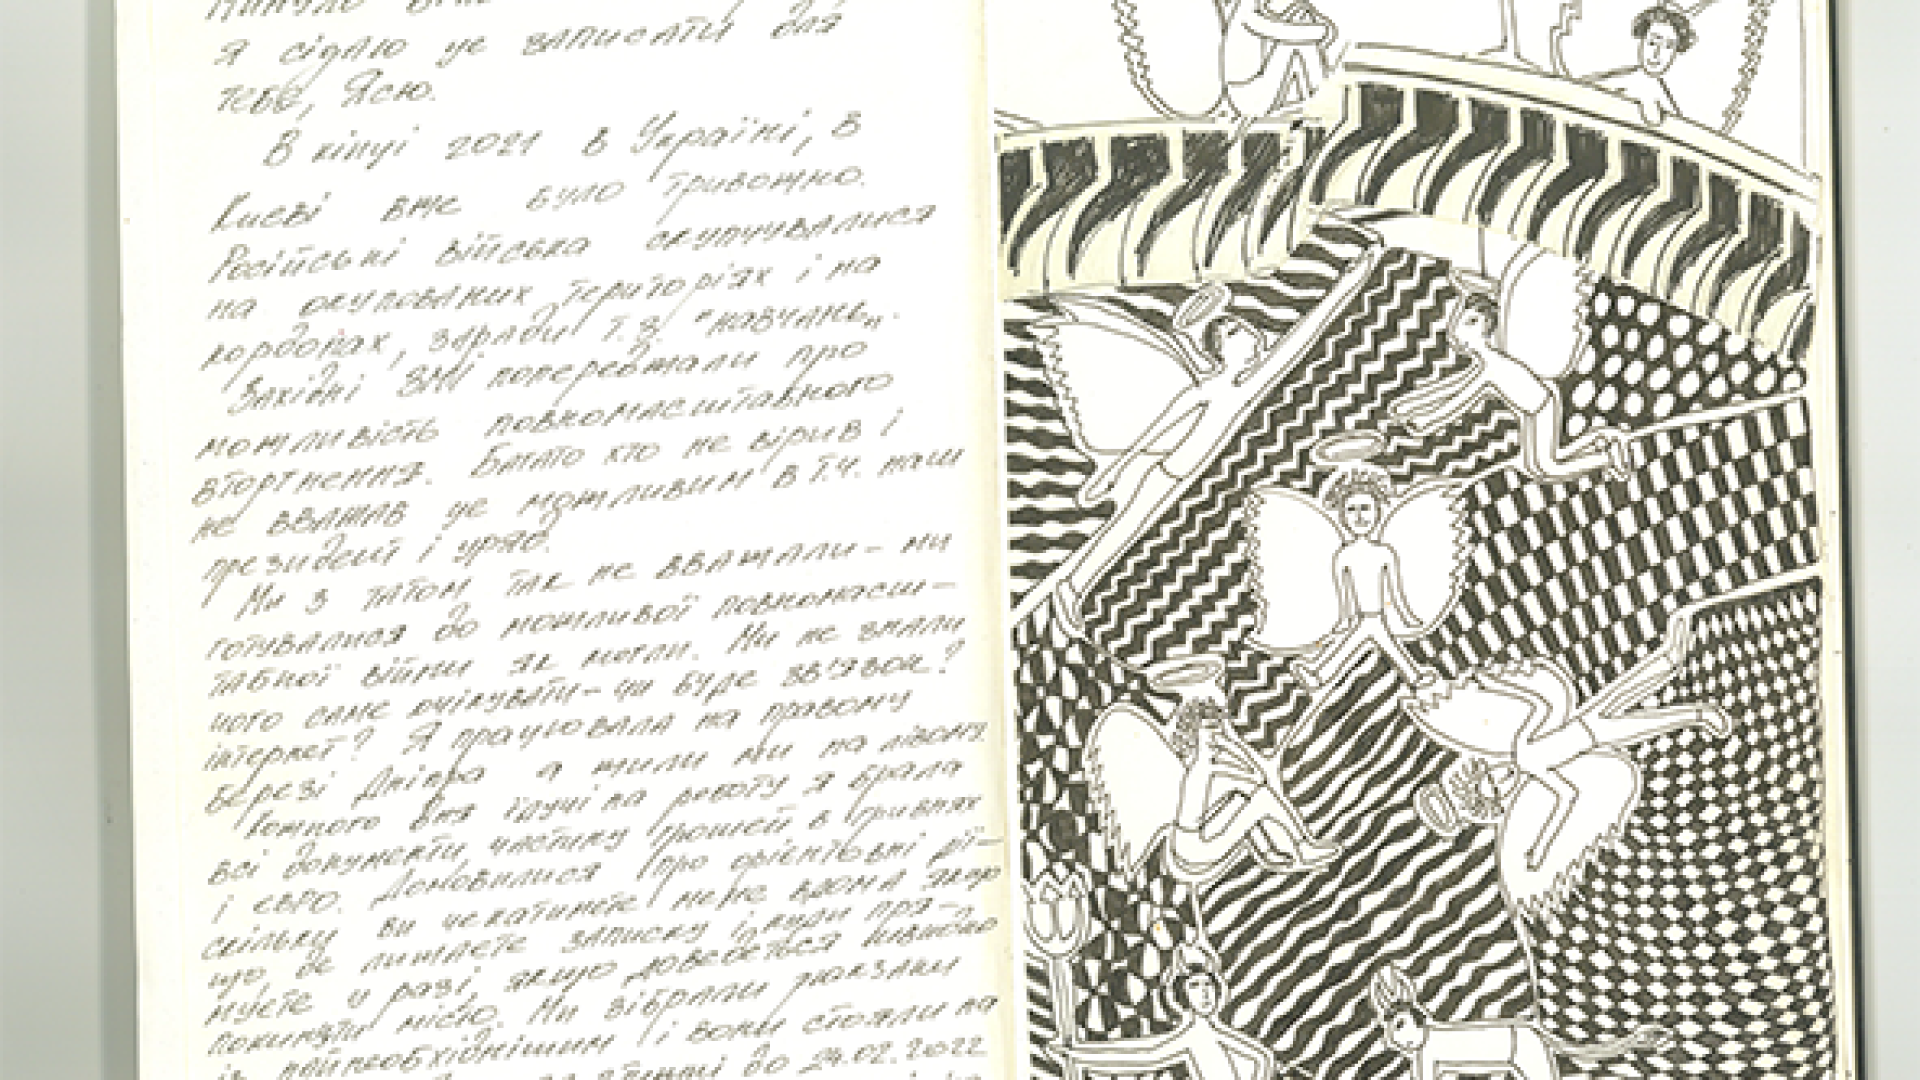 Я сідлю це записати для
тебе, Ясю.
В кінці 2021 в Україні, в
Києві вже було тривожно.
Російські війська скупчувалися
на окупованих територіях і на
кордонах, заради т.з. "навчань".
Західні ЗМІ попереджали про
можливість повномасштабного
вторгнення. Багато хто не вірив і
не вважав це можливим в т.ч. наш
президент і уряд.
Ми з татом так не вважали - ми
готувалися до можливої повномасш-
табної війни як могли. Ми не знали
чого саме очікувати - чи буде зв'язок?
інтернет? Я працювала на правому
березі Дніпра а жили ми на лівому.
Кожного дня їдучі на роботу я брала
всі документи, частину грошей в гривнях
і євро. Домовилися про орієнтовні
скільки ви чекатимете мене вдома якщо
що, де лишаєте записку і куди пря-
муєте у разі, якщо доведеться
покинути місто. Ми зібрали рюкзаки
із найнеобхіднішим і вони стояли на
до 24.02.2022